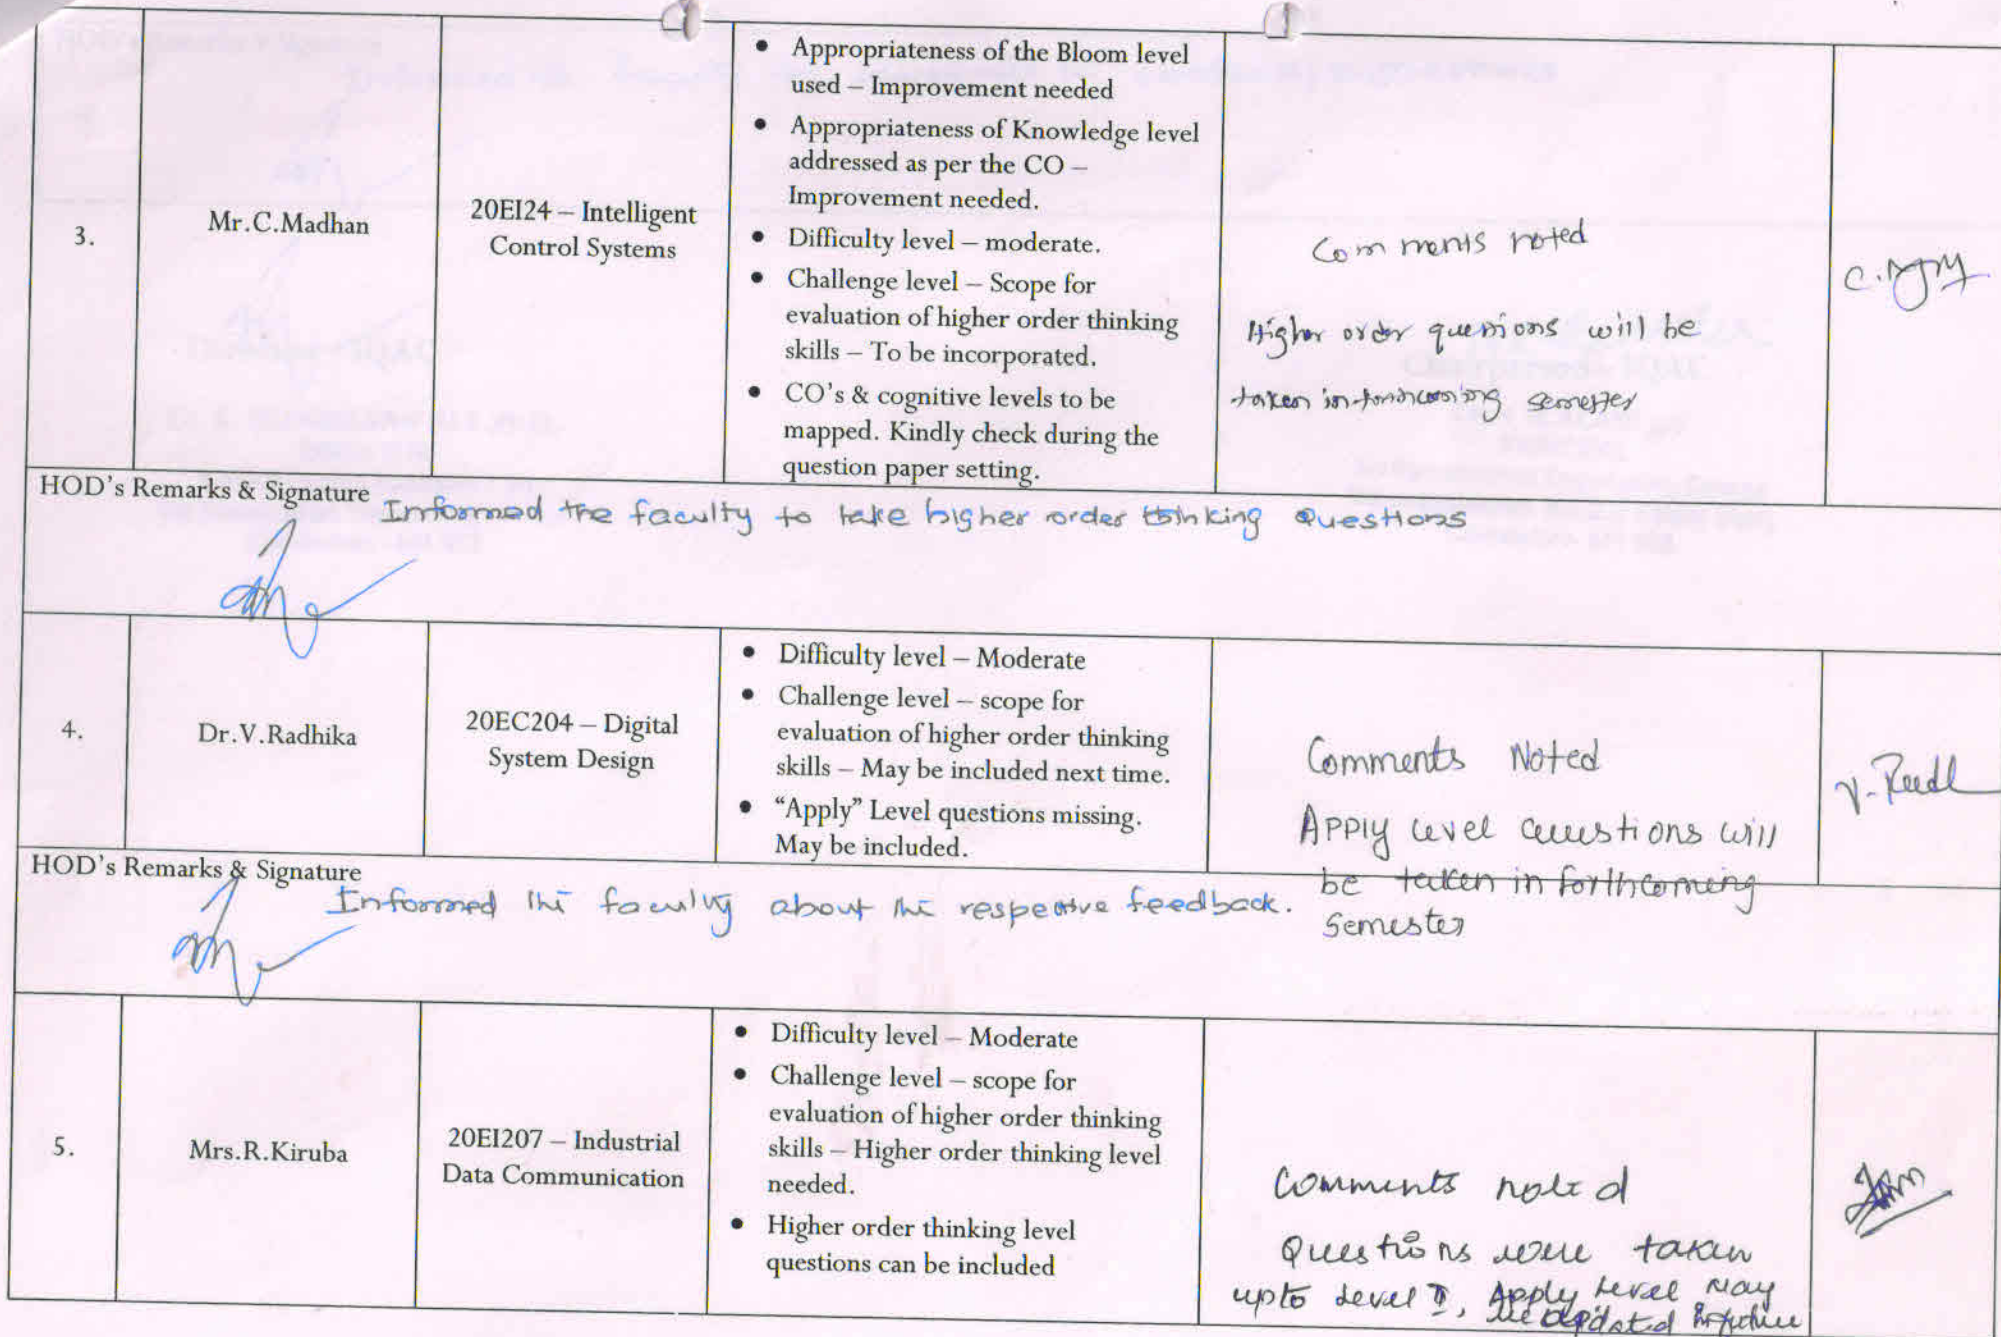 3.
Mr.C.Madhan
20EI24 – Intelligent
Control Systems
• Appropriateness of the Bloom level
used – Improvement needed
• Appropriateness of Knowledge level
addressed as per the CO –
Improvement needed.
• Difficulty level – moderate.
• Challenge level – Scope for
evaluation of higher order thinking
skills – To be incorporated.
• CO's & cognitive levels to be
mapped. Kindly check during the
question paper setting.
Comments noted
Higher order questions will be
taken in forthcoming semester
HOD's Remarks & Signature
Informed the faculty to take higher order thinking Questions
4.
Dr.V.Radhika
20EC204 – Digital
System Design
• Difficulty level – Moderate
• Challenge level – scope for
evaluation of higher order thinking
skills – May be included next time.
• “Apply” Level questions missing.
May be included.
Comments Noted
Apply level questions will
be taken in forthcoming
Semester
HOD's Remarks & Signature
Informed the faculty about the respective feedback.
5.
Mrs.R.Kiruba
20EI207 – Industrial
Data Communication
• Difficulty level – Moderate
• Challenge level – scope for
evaluation of higher order thinking
skills – Higher order thinking level
needed.
• Higher order thinking level
questions can be included
Comments noted
Questions were taken
upto Level I, Apply Level May
be updated in future